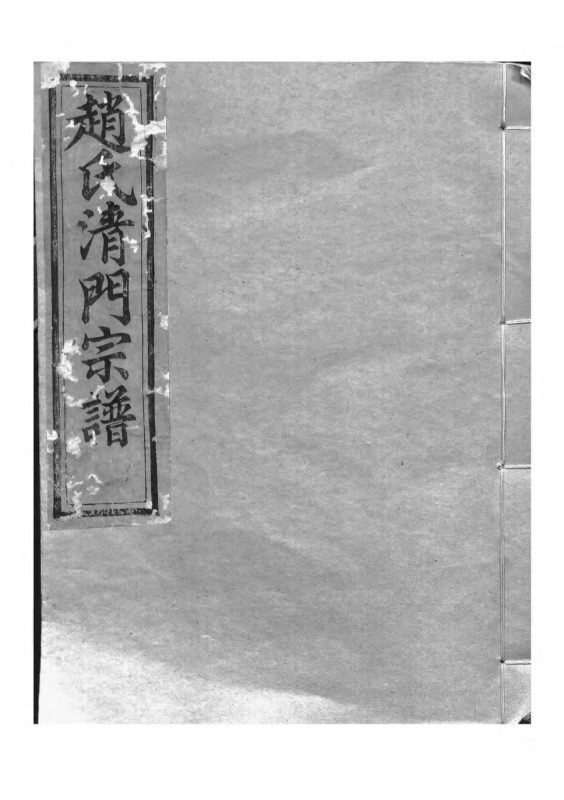 趙氏清門宗譜